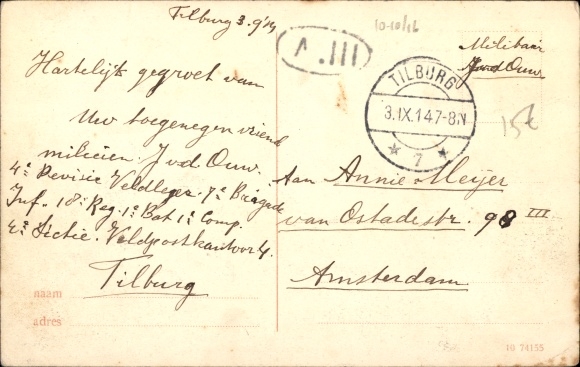 Tilburg 3.9/14
Hartelijk gegroet van
Uw toegenegen vriend
milicien. J vd Ouw.
4e Devisie Veldleger. 7e Brigade
Inf. 18e Reg. 1e Bat 1e Comp.
4e Sictie. Veldpostkantoor 4.
Tilburg
naam
adres
10-10/16
A.III
TILBURG
3.IX.14 7-8N
* 7 *
Militair
J vd Ouw
15€
Aan Annie Meijer
van Ostadestr. 98 III
Amsterdam
10 74155